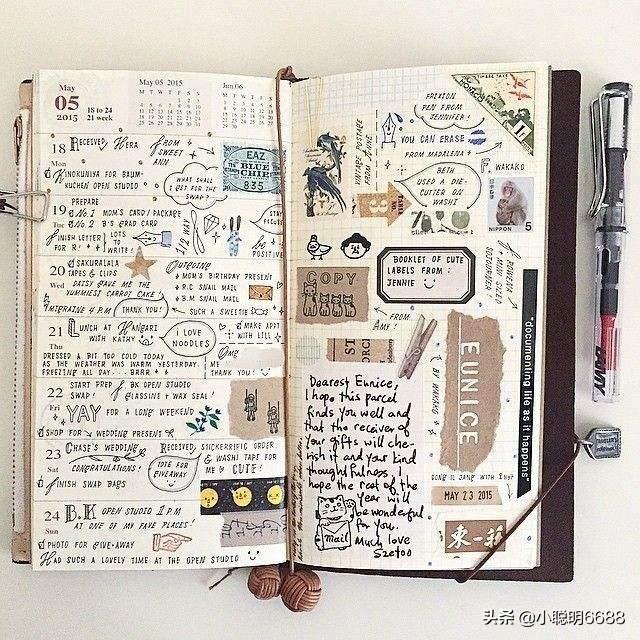 May
05
2015
18 to 24
21 week
May 05 2015
Jun 06
18
Mon
RECEIVED HERA
FROM SWEET ANN
KINOKUNIYA FOR BAUM-
KUCHEN OPEN STUDIO
WHAT SHALL
I GET FOR THE
SWAP?
EAZ
BLUE
CHIP
835
19
Tue
PREPARE
NO.1 MOM'S CARD/PACKAGE
NO.2 B'S GRAD CARD
FINISH LETTER
FOR R!
LOTS
TO
WRITE!
1/2 WAY
STAY
be
POSITIVE
20
Wed
SAKURALALA
TAPES & CLIPS
DAISY GAVE ME THE
YUMMIEST CARROT CAKE!
MIGRAINE 4 P.M
THANK YOU!
OUTGOING
MOM'S BIRTHDAY PRESENT
R.C SNAIL MAIL
B.M SNAIL MAIL
SUCH A SWEETIE
21
Thu
LUNCH AT HANGARI
WITH KATHY
I LOVE
NOODLES
MAKE APPT
WITH LILI
DRESSED A BIT TOO COLD TODAY
AS THE WEATHER WAS WARM YESTERDAY.
FREEZING ALL DAY... BRRR
THANK YOU!
22
Fri
START PREP
SWAP!
BK OPEN STUDIO
GLASSINE + WAX SEAL!
YAY FOR A LONG WEEKEND
SHOP FOR WEDDING PRESENT
23
Sat
CHASE'S WEDDING
CONGRATULATIONS!
FINISH SWAP BAGS
TOTE FOR
GIVEAWAY
RECEIVED STICKERRIFIC ORDER
& WASHI TAPE FOR
ME CUTE!
24
Sun
B.K OPEN STUDIO 1 PM
AT ONE OF MY FAVE PLACES!
PHOTO FOR GIVE-AWAY
HAD SUCH A LOVELY TIME AT THE OPEN STUDIO
FRIXION
PEN FROM
JENNIFER!
YOU CAN ERASE
FROM MADALENA
VINTAGE POSTAGE
FROM ANNE
BETH
USED A DIE-
CUTTER ON
WASHI
WAKAKO
NIPPON
5
COPY
BOOKLET OF CUTE
LABELS FROM:
JENNIE
FROM
AMY!
EUNICE
BY WAKAKO
"documenting life as it happens"
Dearest Eunice,
I hope this parcel
finds you well and
that the receiver of
your gifts will che-
rish it and your kind
thoughtfulness. I
hope the rest of the
year will
be wonderful
for you.
Much love
Szetoo
Mail
MAY 23 2015
東一莊
头条 @小聪明6688